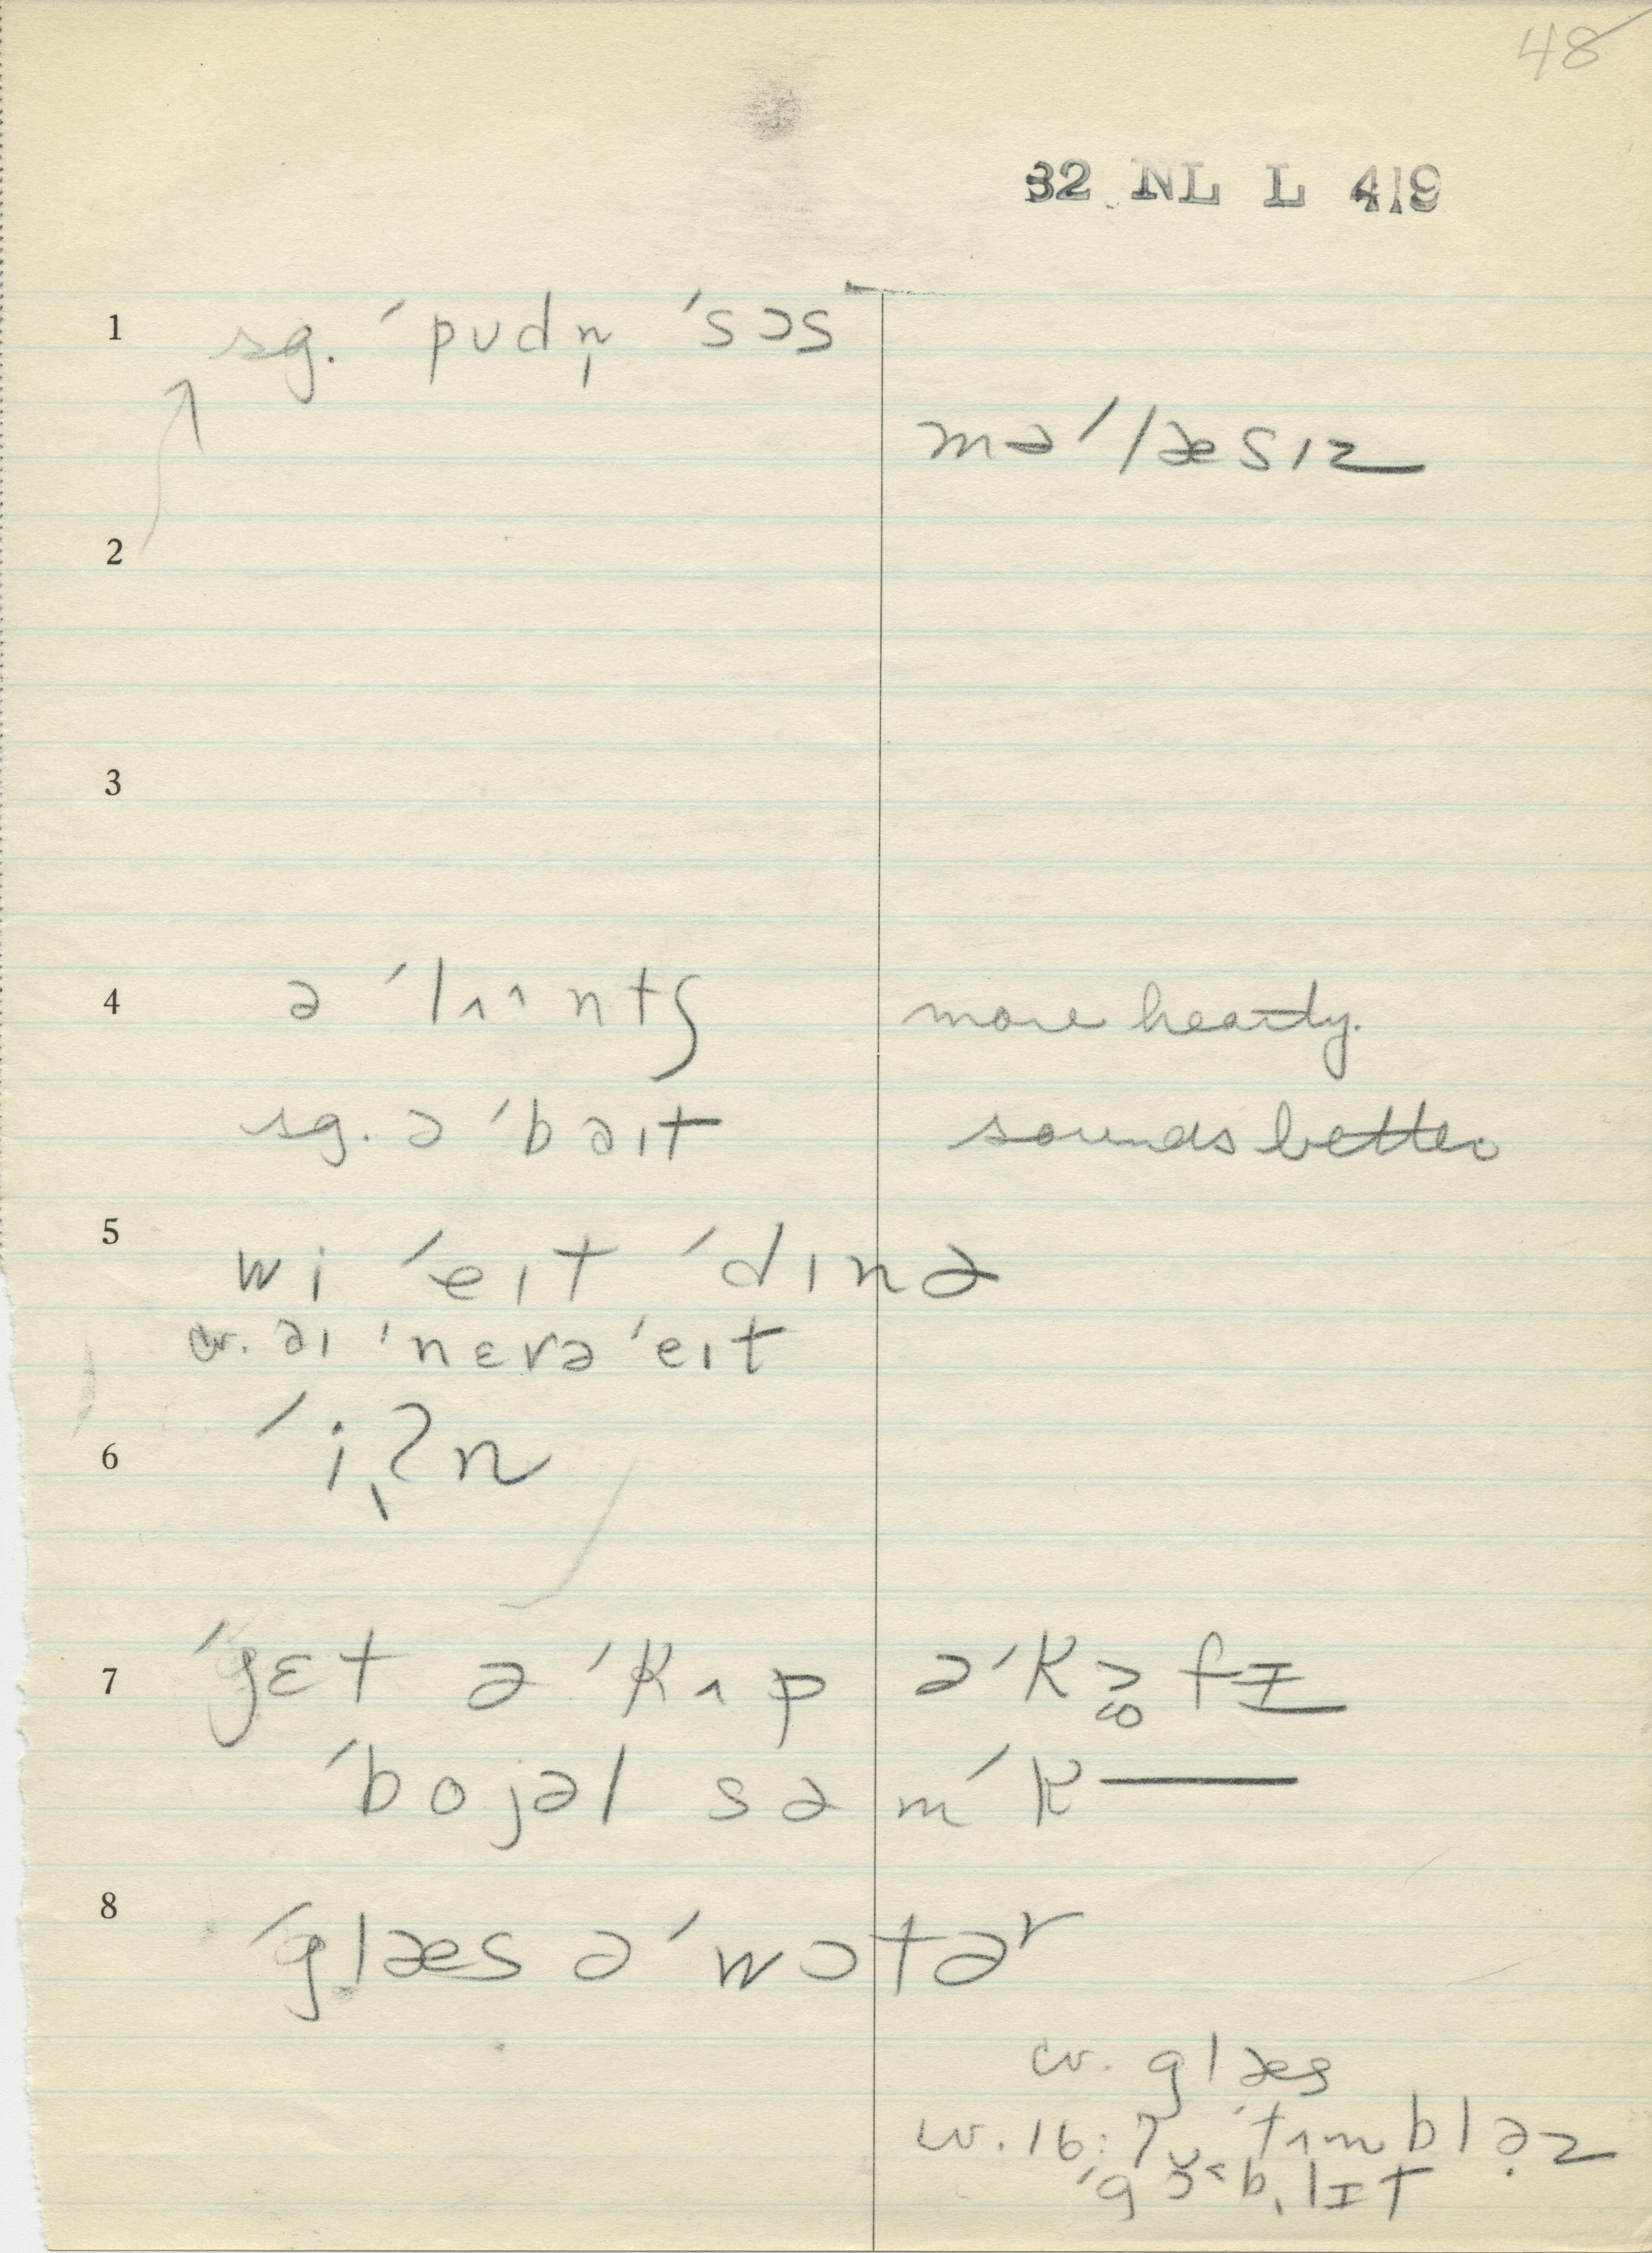 48
32 NL L 419
1 sg. ˈpʊdn̩ ˈsɔs
məˈlæsɪz
2
3
4 ə ˈlʌ^ntʃ more hearty.
sg. ə ˈbəɪt sounds better
5 wi ˈeɪt ˈdɪnə
cv. əɪ ˈnɛvə ˈeɪt
6 ˈiʔn̩
7 ˈgɛt ə ˈkʌp ə ˈkɔfɪ
ˈbojəl səm ˈk—
8 ˈglæs ə ˈwɔtəʳ
cv. glæs
cv. 16:7 ˈtʌmbləz
ˈgɔblɪt